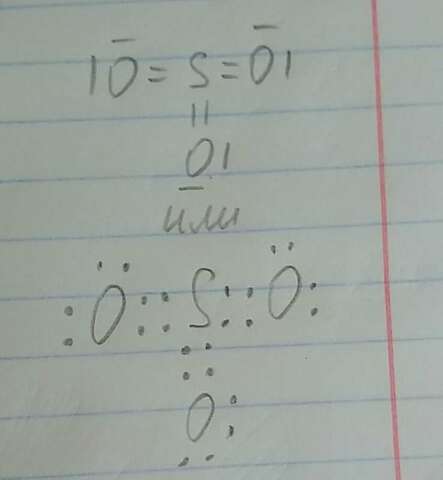 |O̅ = S = O̅|
||
O̲|
или
:Ö::S::Ö:
::
O:
..